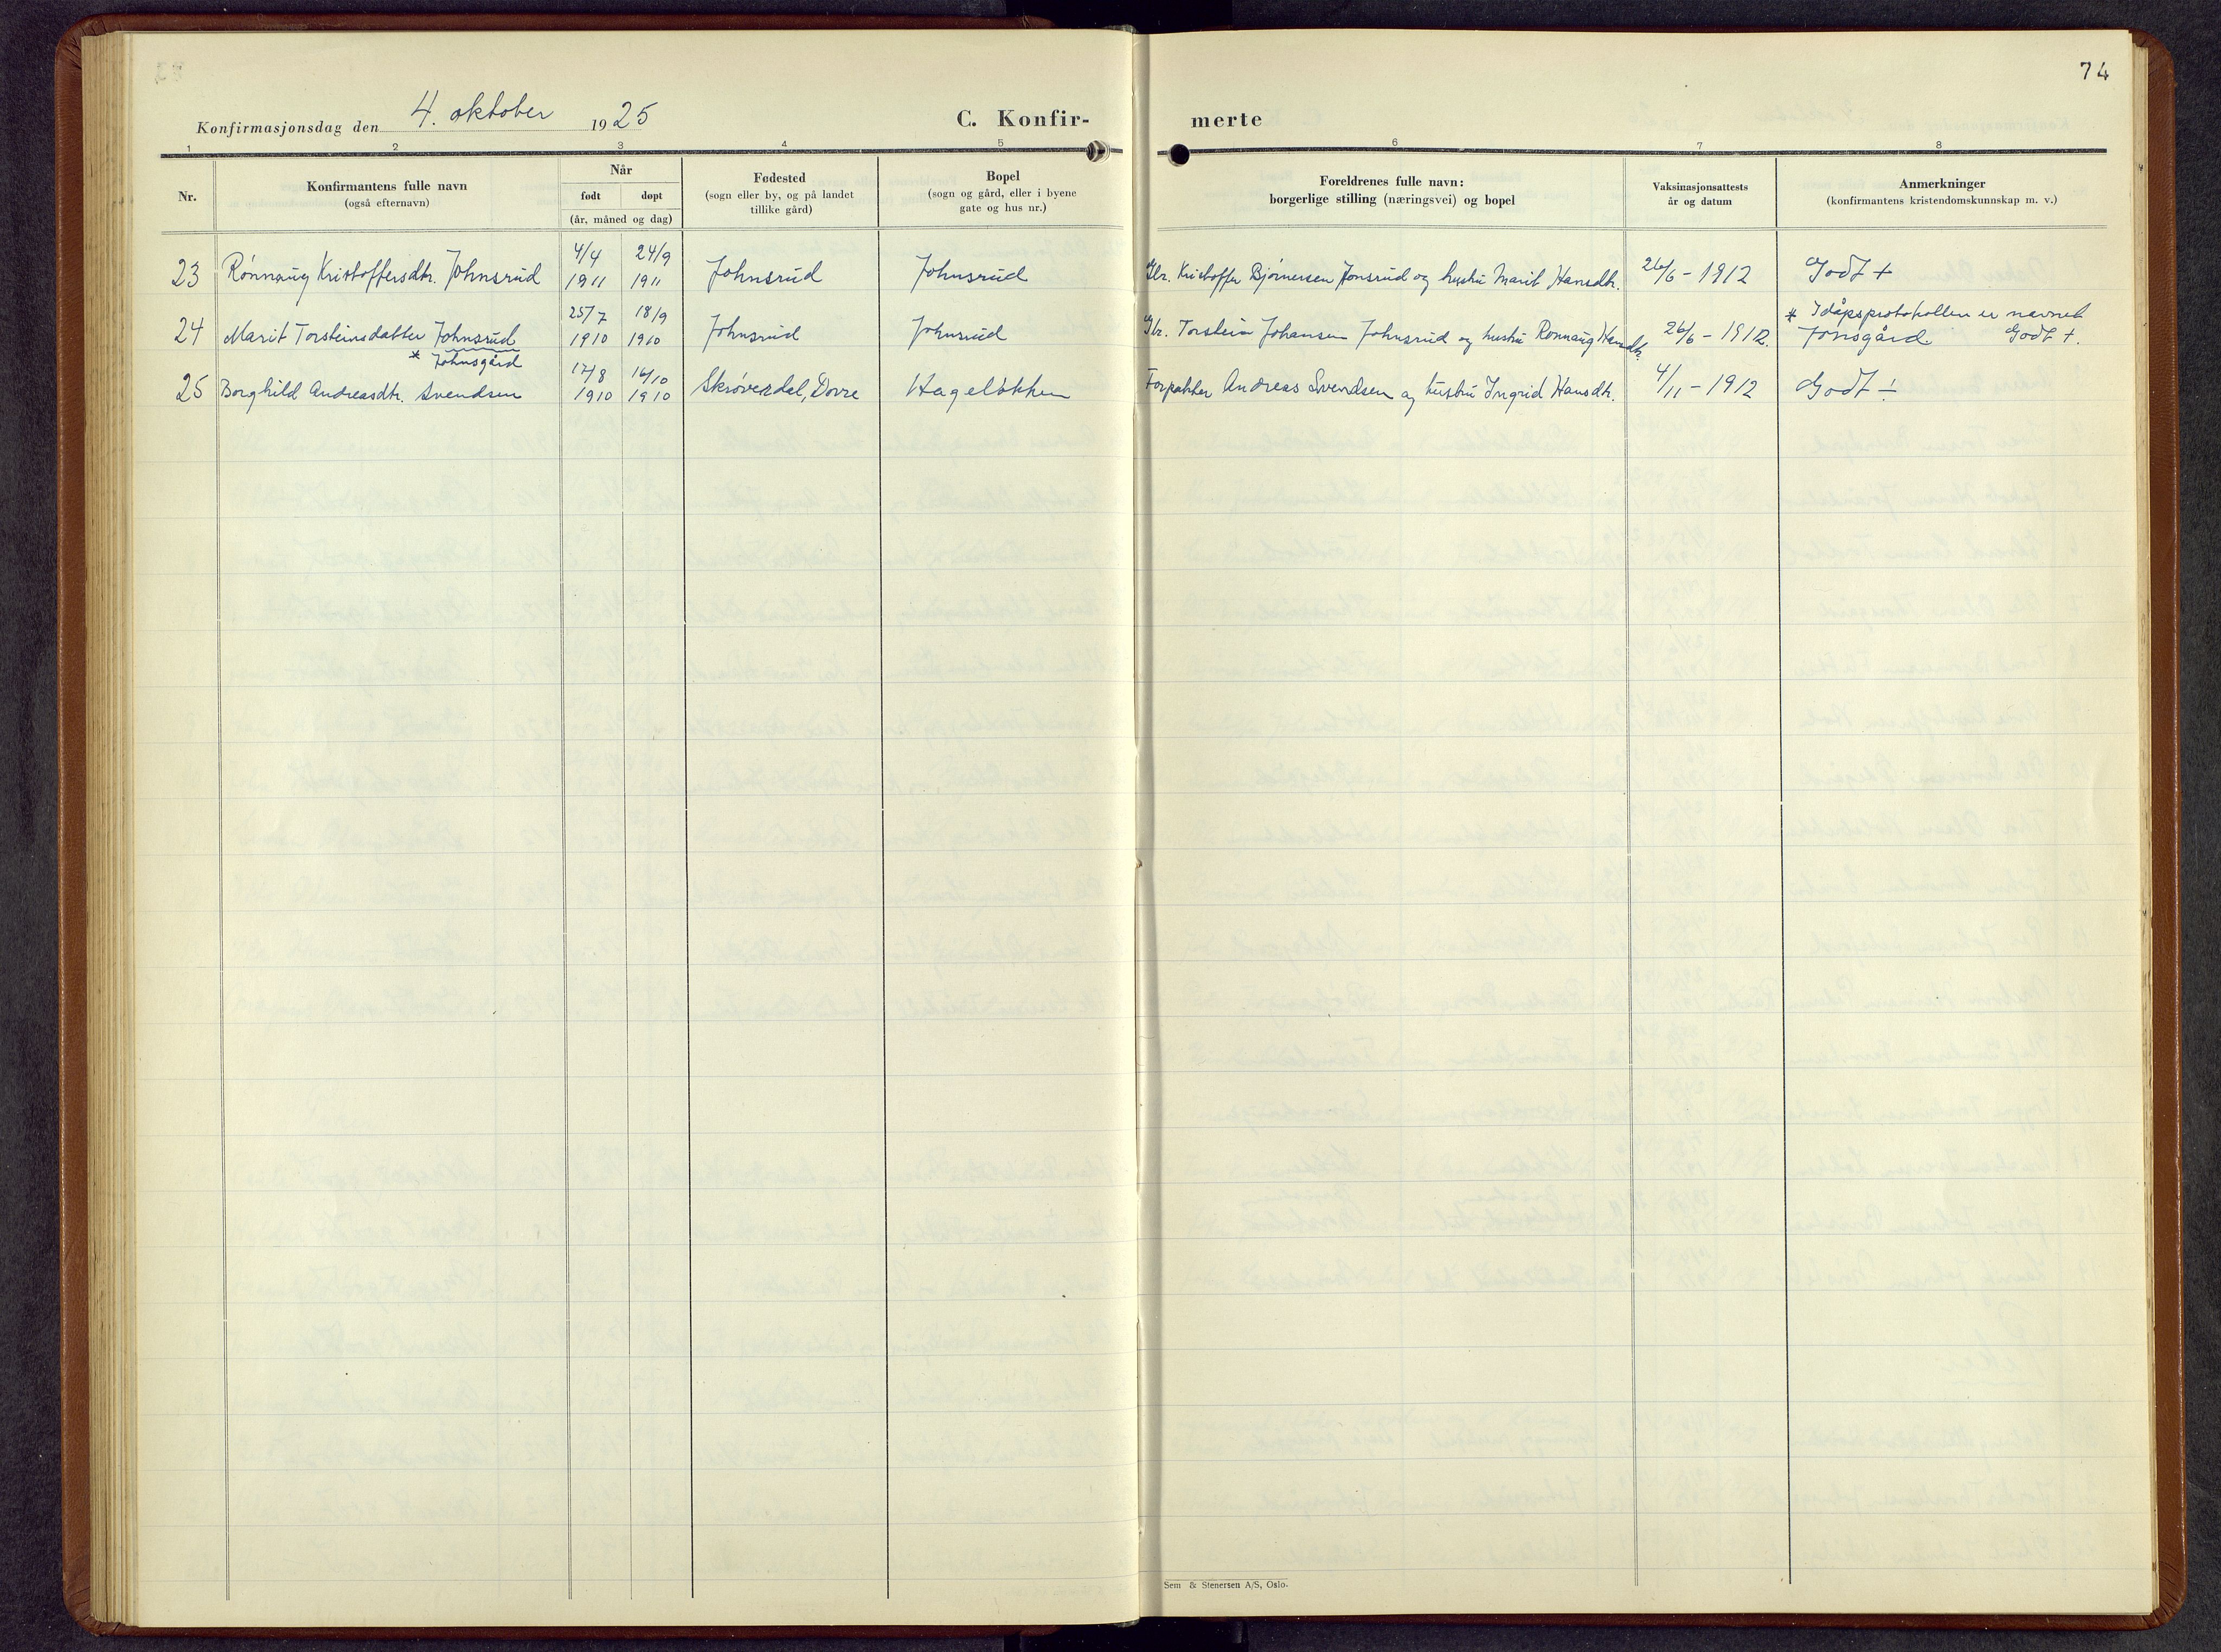 74
Konfirmasjonsdag den 4. oktober 1925
C. Konfir- merte
1 2 3 4 5 6 7 8
Nr.
Konfirmantens fulle navn
(også efternavn)
Når
født døpt
(år, måned og dag)
Fødested
(sogn eller by, og på landet
tillike gård)
Bopel
(sogn og gård, eller i byene
gate og hus nr.)
Foreldrenes fulle navn:
borgerlige stilling (næringsvei) og bopel
Vaksinasjonsattests
år og datum
Anmerkninger
(konfirmantens kristendomskunnskap m. v.)
23 Rönnaug Kristoffersdtr. Johnsrud 4/4 1911 24/9 1911 Johnsrud Johnsrud Gbr. Kristoffer Bjørnersen Jonsrud og hustru Marit Hansdtr. 26/6 - 1912 Godt +
24 Marit Torsteinsdatter Johnsrud 25/7 1910 18/9 1910 Johnsrud Johnsrud Gbr. Torstein Johansen Johnsrud og hustru Ronnaug Hansdtr. 26/6 - 1912. * I dåpsprotokollen er navnet
Jonsgård. Godt +.
* Johnsgård
25 Borghild Andreasdtr. Svendsen 17/8 1910 16/10 1910 Skröverdal, Dovre Hagelökken Forpakter Andreas Svendsen og hustru Ingrid Hansdtr. 4/11 - 1912 Godt ÷
Sem & Stenersen A/S, Oslo.